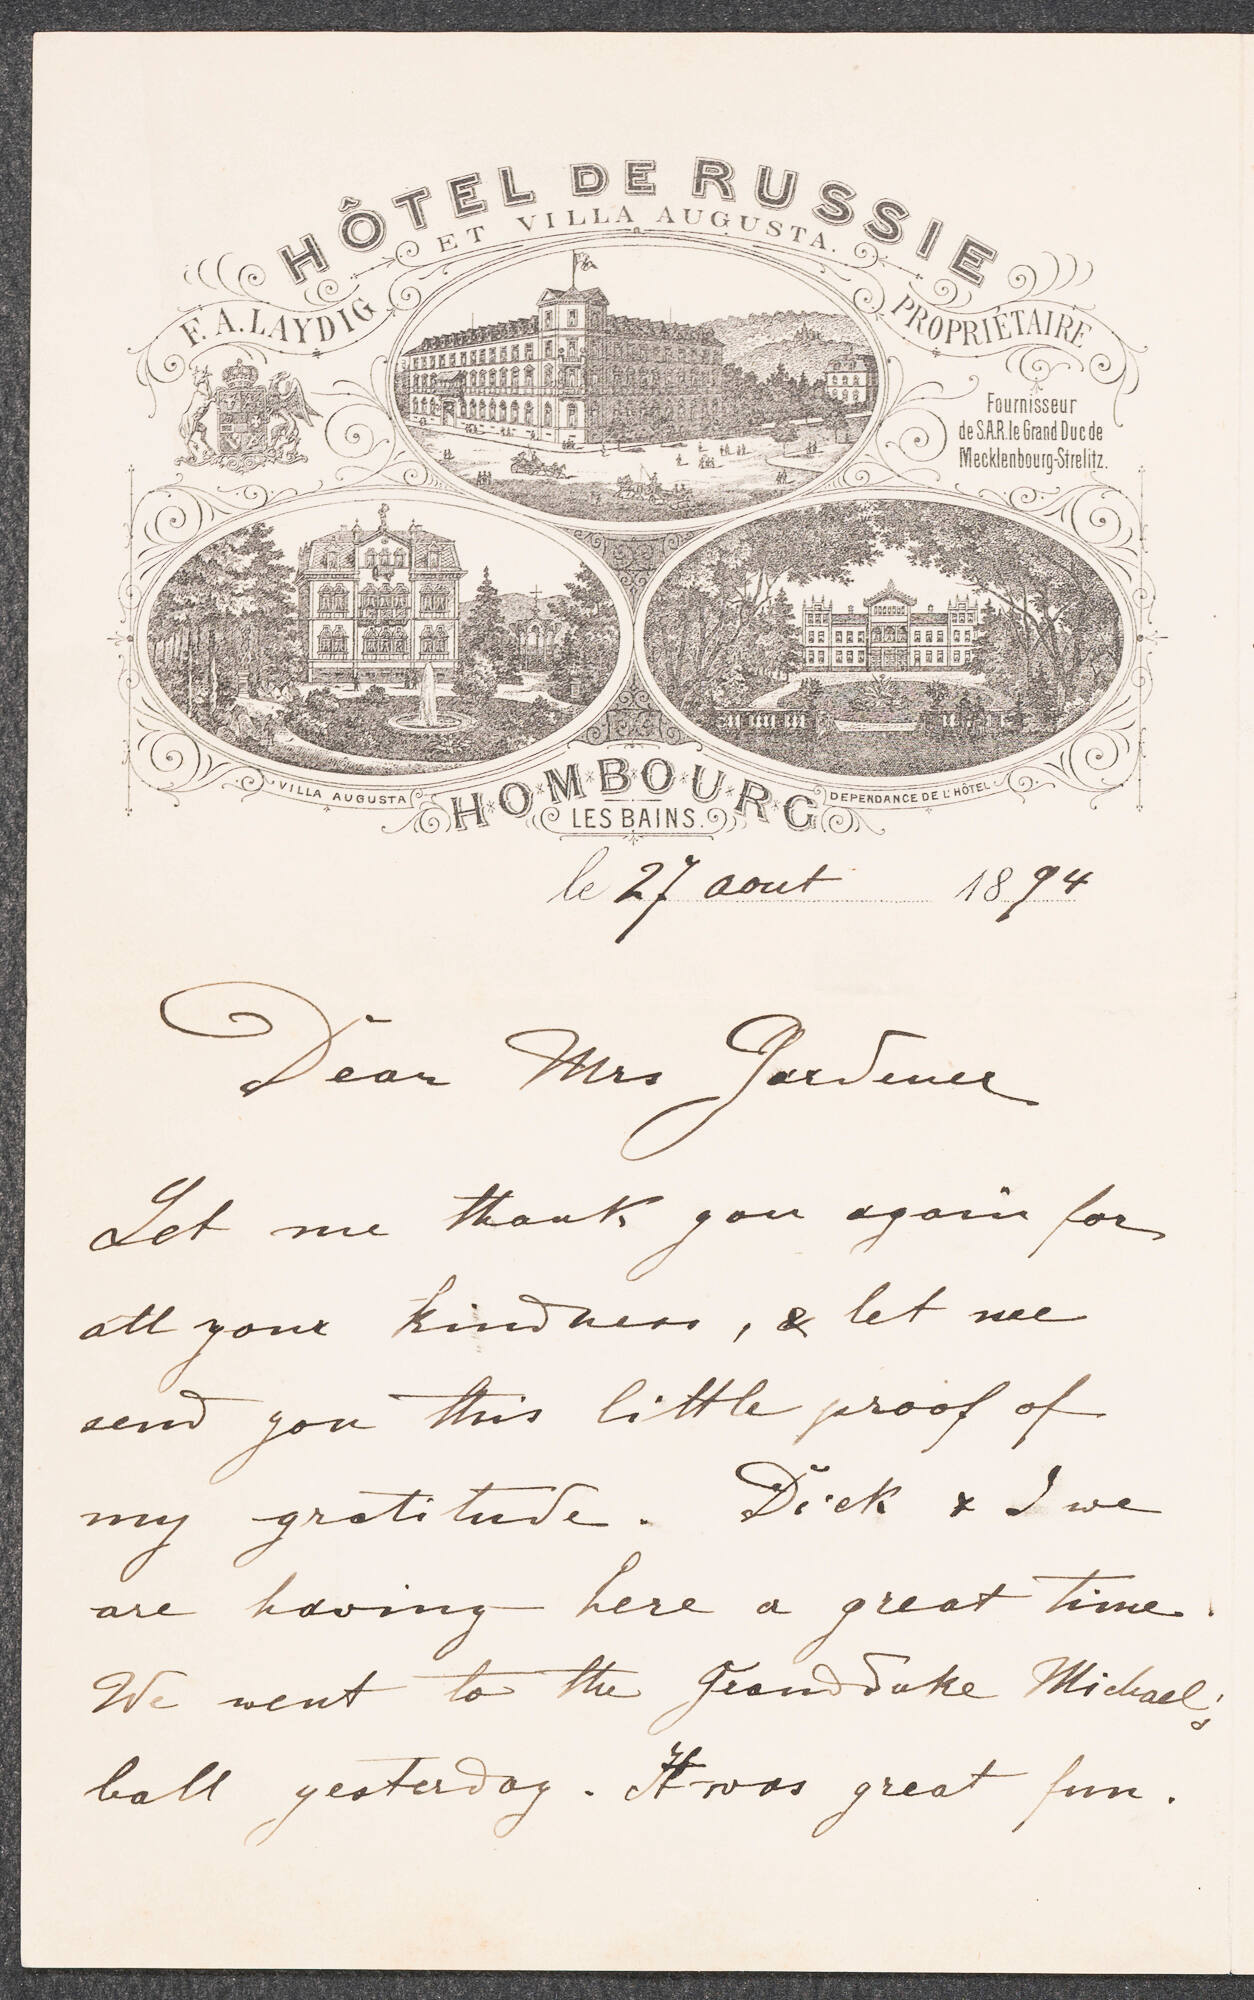 HÔTEL DE RUSSIE
ET VILLA AUGUSTA.
F. A. LAYDIG
PROPRIÉTAIRE
Fournisseur
de S.A.R. le Grand Duc de
Mecklenbourg-Strelitz.
VILLA AUGUSTA
DEPENDANCE DE L'HÔTEL
HOMBOURG
LES BAINS.
le 27 aout 1894
Dear Mrs Gardener
Let me thank you again for
all your kindness, & let me
send you this little proof of
my gratitude. Dick & I we
are having here a great time.
We went to the Grandduke Michael's
ball yesterday. It was great fun.